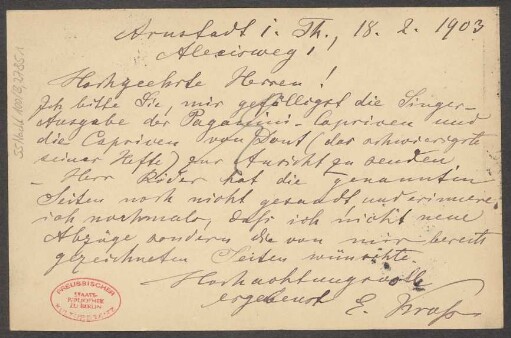 Arnstadt i. Th., 18. 2. 1903
Alexisweg 1
Hochgeehrte Herren!
Ich bitte Sie, mir gefälligst die Singer-
Ausgabe der Paganini-Capricen und
die Capricen von Dont (das schwierigste
seiner Hefte) zur Ansicht zu senden
– Herr Röder hat die genannten
Seiten noch nicht gesandt und erinnere
ich nochmals, dass ich nicht neue
Abzüge sondern die von mir bereits
gezeichneten Seiten wünschte.
Hochachtungsvoll
ergebenst E.
PREUSSISCHER
STAATS-
BIBLIOTHEK
ZU BERLIN
KULTURBESITZ